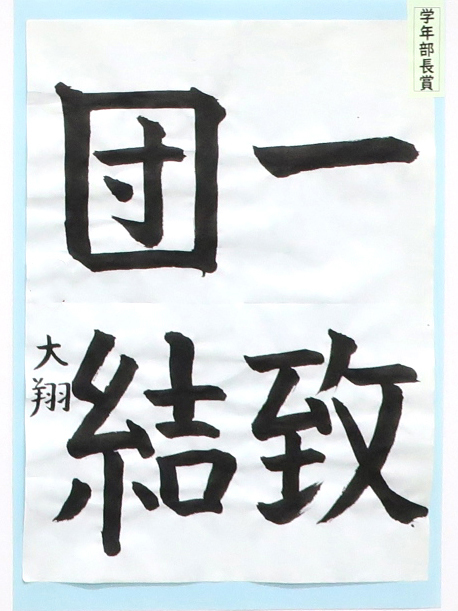 学年部長賞
一致
団結
大翔